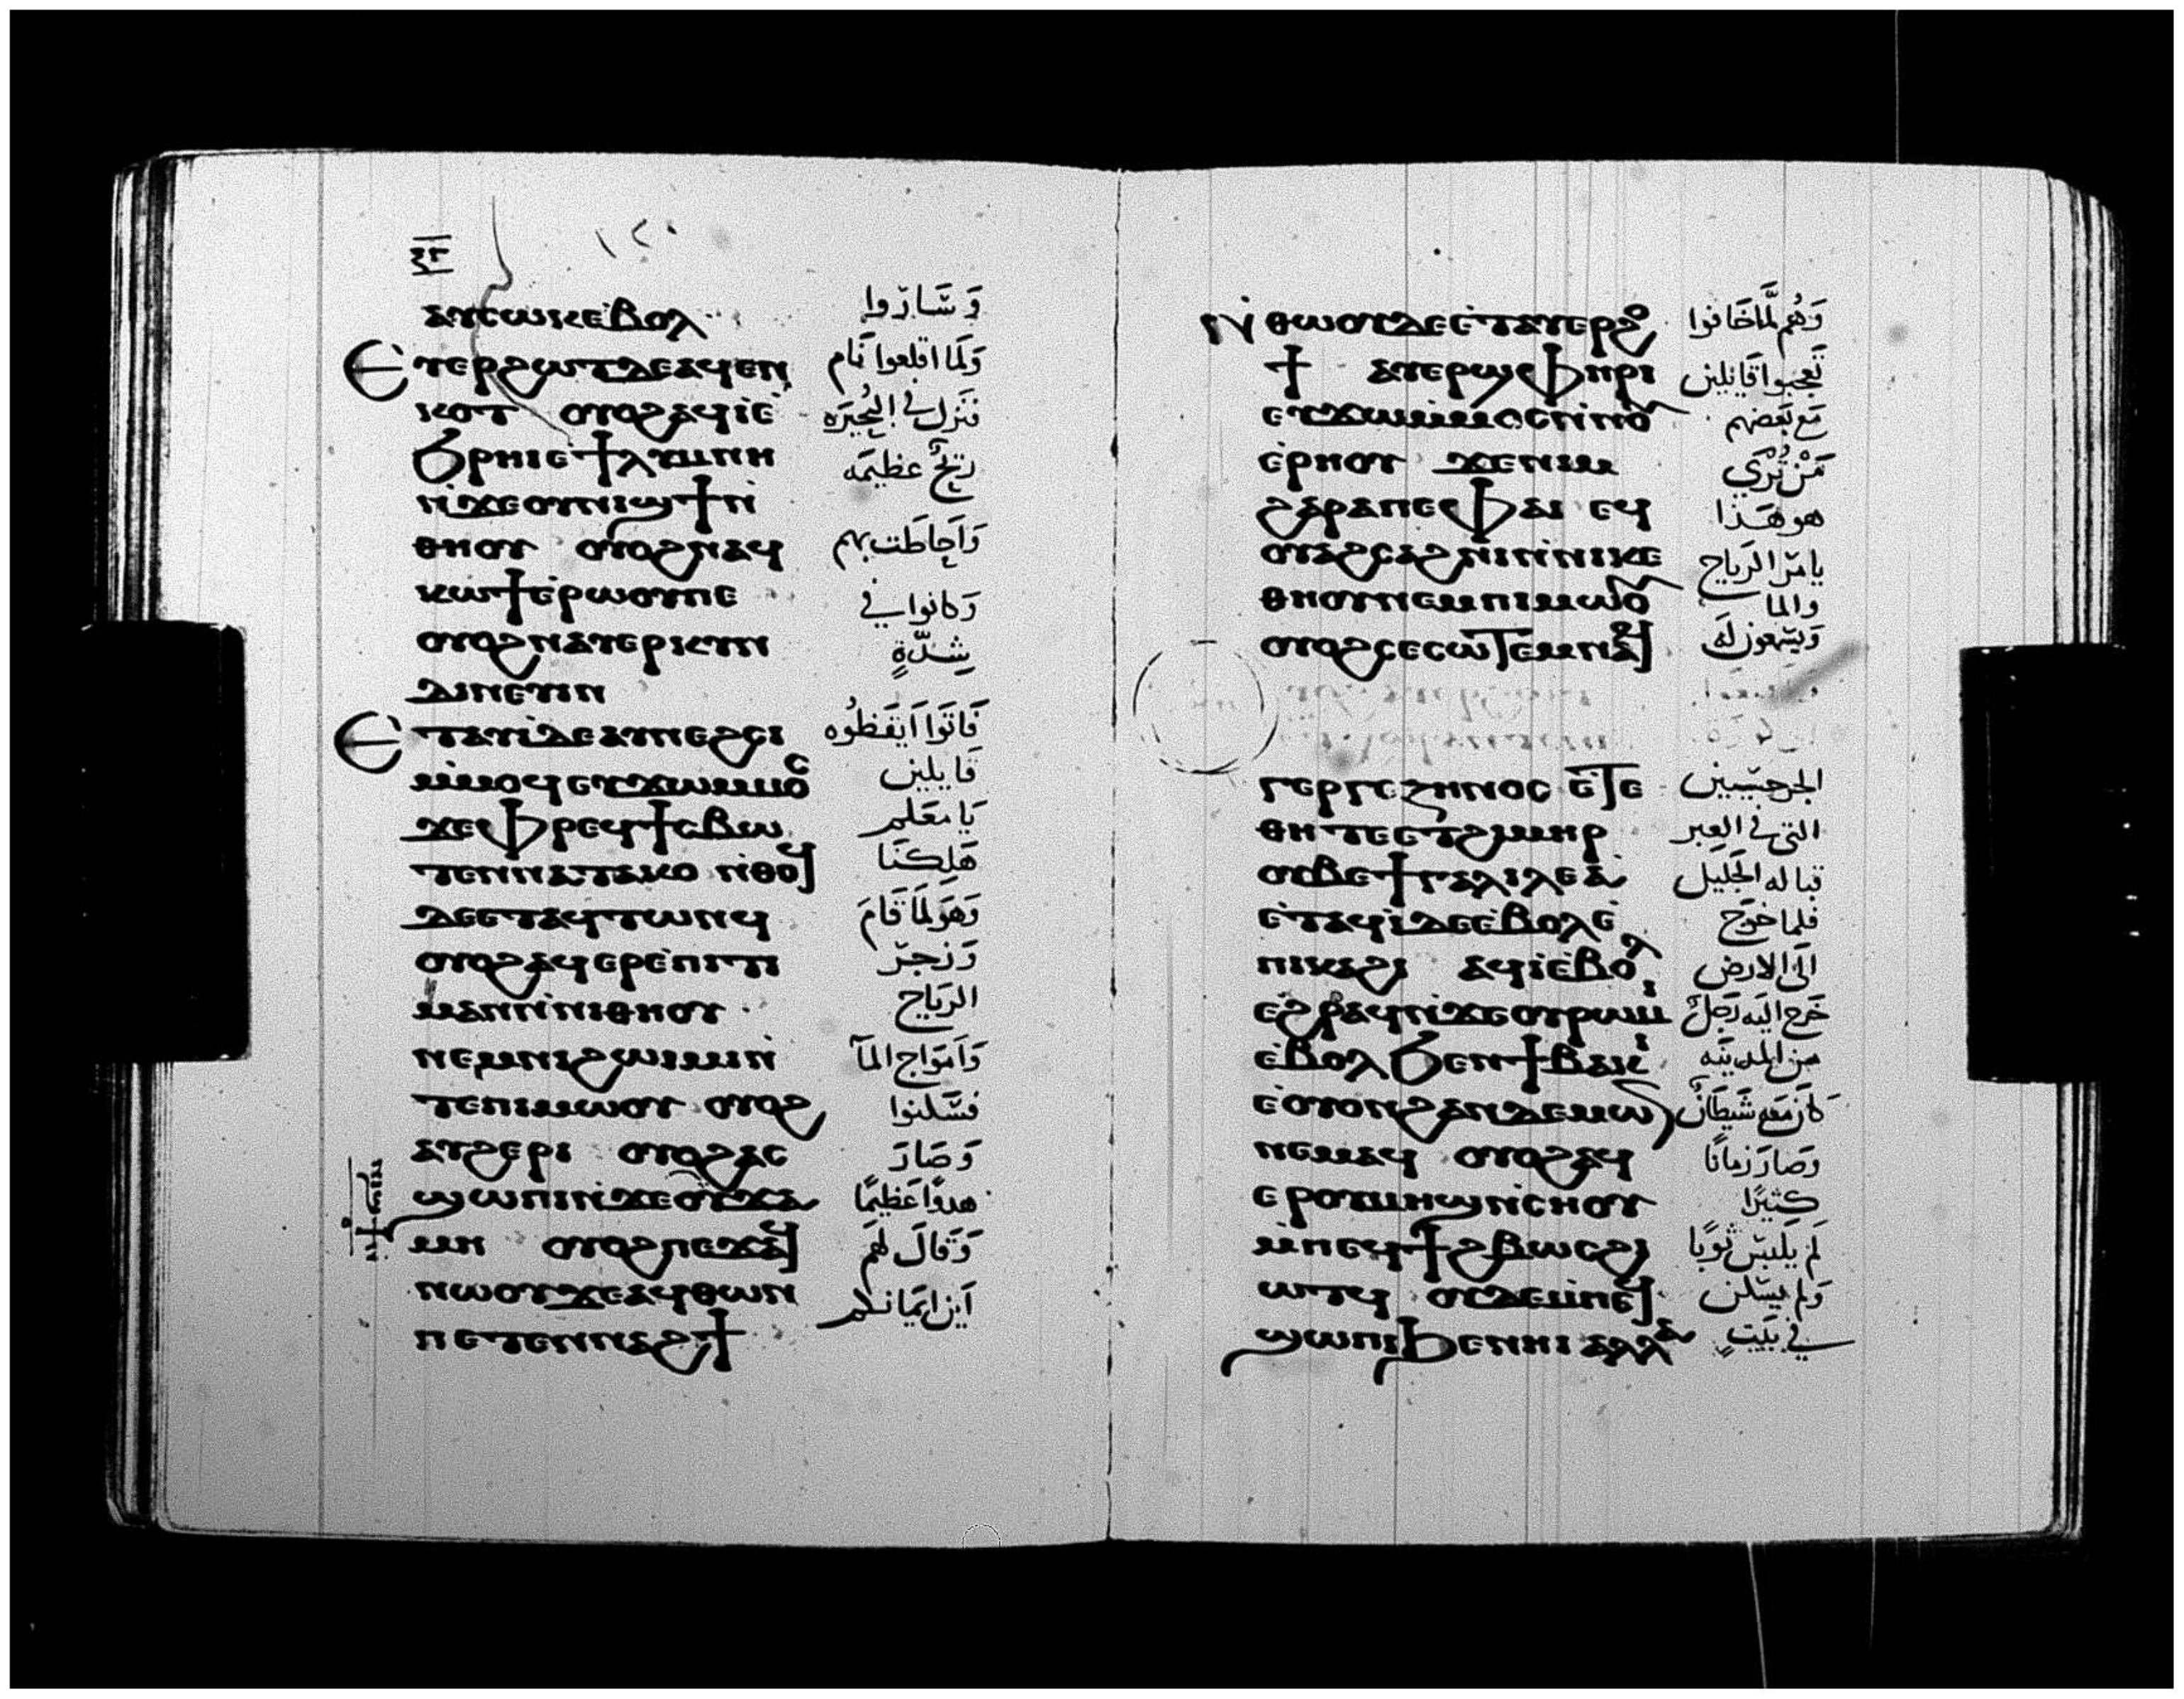 ⲁⲩⲥⲱⲕⲉ̀ⲃⲟⲗ
وَسَارُوا
Ⲉⲧⲉⲣϩⲱⲧⲇⲉⲁϥⲉⲛ
وَلَمَا اقلعوا نَام
ⲕⲟⲧ ⲟⲩⲟϩⲁϥⲓ̀ⲉ̀
فنَزل في البُحَيرَه
ϧⲣⲏⲓⲉϯⲗⲩⲙⲛⲏ
ريحٌ عظيمَه
ⲛ̀ϫⲉⲟⲩⲛⲓϣϯⲛ̀
ⲑⲏⲟⲩ ⲟⲩⲟϩⲛⲁϥ
وَاَحاطَت بهم
ⲕⲱϯⲉ̀ⲣⲱⲟⲩⲡⲉ
وَكانوا في
ⲟⲩⲟϩⲛⲁⲩⲉⲣⲕⲩⲛ
شِدّةٍ
ⲇⲓⲛⲉⲩⲓⲛ
Ⲉⲧⲁⲩⲓ̀ⲇⲉⲁⲩⲛⲉϩⲥⲓ
فَاتَوا اَيقَظُوه
ⲙ̀ⲙⲟϥⲉⲩϫⲱⲙⲙⲟⲥ
قَايلين
ϫⲉⲫⲣⲉϥϯⲥⲃⲱ
يَا مَعَلم
ⲧⲉⲛⲛⲁⲧⲁⲕⲟ ⲛ̀ⲑⲟϥ
هَلكنَا
ⲇⲉⲉⲧⲁϥⲧⲱⲛϥ
وَهوَ لَمَا قَامَ
ⲟⲩⲟϩⲁϥⲉⲣⲉ̀ⲡⲓⲧⲓ
وَزَجَرَ
ⲙⲁⲛⲛ̀ⲛⲓⲑⲏⲟⲩ
الريَاح
ⲛⲉⲙⲛⲓϩⲱⲓⲙⲓⲛ̀
وَاَموَاج المآ
ⲧⲉⲡⲓⲙⲱⲟⲩ ⲟⲩⲟϩ
فسَكنوا
ⲁⲩϩⲉⲣⲓ ⲟⲩⲟϩⲁⲥ
وَصَارَ
ϣⲱⲡⲓⲛ̀ϫⲉⲟⲩϫⲁ
هدوًا عَظيمًا
ⲙⲏ ⲟⲩⲟϩⲡⲉϫⲁϥ
وَقالَ لهَم
ⲛⲱⲟⲩϫⲉⲁϥⲑⲱⲛ
اَين ايمَانكم
ⲡⲉⲧⲉⲛⲛⲁϩϯ
ⲛ̀ⲑⲱⲟⲩⲇⲉⲉ̀ⲧⲁⲩⲉⲣϩⲟ
وَهُم لَّمَا خَافوا
ϯ ⲁⲩⲉⲣϣⲫⲏⲣⲓ
تَعجبوا قَايلين
ⲉⲩϫⲱⲙⲙⲟⲥⲛ̀ⲛⲟⲩ
مَع بَعضهم
ⲉ̀ⲣⲏⲟⲩ ϫⲉⲛⲓⲙ
مَنْ تُرَي
ϩⲁⲣⲁⲡⲉⲫⲁⲓ ⲉϥ
هو هَذا
ⲟⲩⲁϩⲥⲁϩⲛⲓⲛ̀ⲛⲓⲕⲉ
يامَر الريَاح
ⲑⲏⲟⲩⲛⲉⲙⲡⲓⲙⲱⲟⲩ
والما
ⲟⲩⲟϩⲥⲉⲥⲱⲧⲉⲙⲛⲁϥ
وَيسَمعون لَه
ⲅⲉⲣⲅⲉⲍⲏⲛⲟⲥ ⲉ̀ⲧⲉ
الجرجسَيين
ⲑⲏⲧⲉⲉⲧϩⲓⲙⲏⲣ
التي في العِبر
ⲟⲩⲃⲉϯⲅⲁⲗⲓⲗⲉⲁ̀
قباله الجَليل
ⲉ̀ⲧⲁϥⲓ̀ⲇⲉⲉ̀ⲃⲟⲗⲉ̀
فلما خرَج
ⲡⲓⲕⲁϩⲓ ⲁϥⲓ̀ⲉ̀ⲃⲟⲗ
اليَ الارض
ⲉϩⲣⲁϥⲛ̀ϫⲉⲟⲩⲣⲱⲙⲓ
خَرَج اليَه رَجَلٌ
ⲉ̀ⲃⲟⲗϧⲉⲛϯⲃⲁⲕⲓ
من المدينَه
ⲉ̀ⲟⲩⲟⲛϩⲁⲛⲇⲉⲙⲱⲛ
كانَ مَعَه شَيطَانٌ
ⲛⲉⲙⲁϥ ⲟⲩⲟϩⲁϥ
وَصَارَ زمانًا
ⲉⲣⲟⲩⲙⲏϣⲛ̀ⲥⲏⲟⲩ
كثيرًا
ⲙ̀ⲡⲉϥϯϩⲃⲱⲥϩⲓ
لَم يلبَس ثوَبًا
ⲱⲧϥ ⲟⲩⲇⲉⲙ̀ⲡⲉϥ
وَلم يسَكن
ϣⲱⲡⲓϧⲉⲛⲏⲓ ⲁⲗⲗⲁ
في بَيتٍ